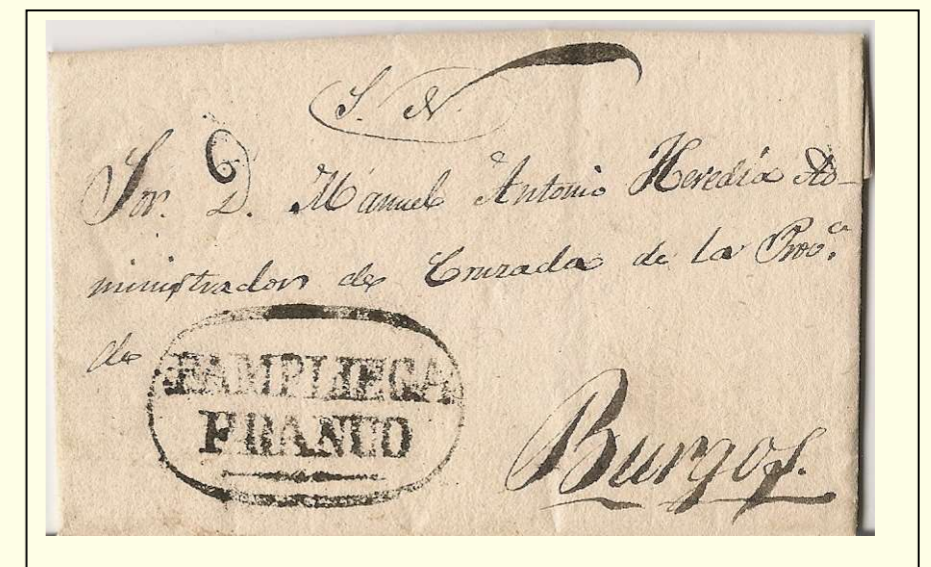 S. N.
Sor. D. Manuel Antonio Heredia Ad-
ministrador de Cruzada de la Prov.ª
de
PAMPLIEGA
FRANCO
Burgos.